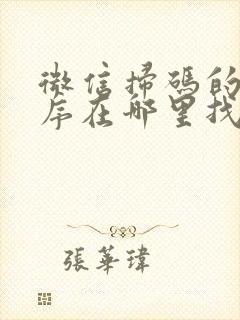 微信掃碼的
序在哪里找
張華瑋